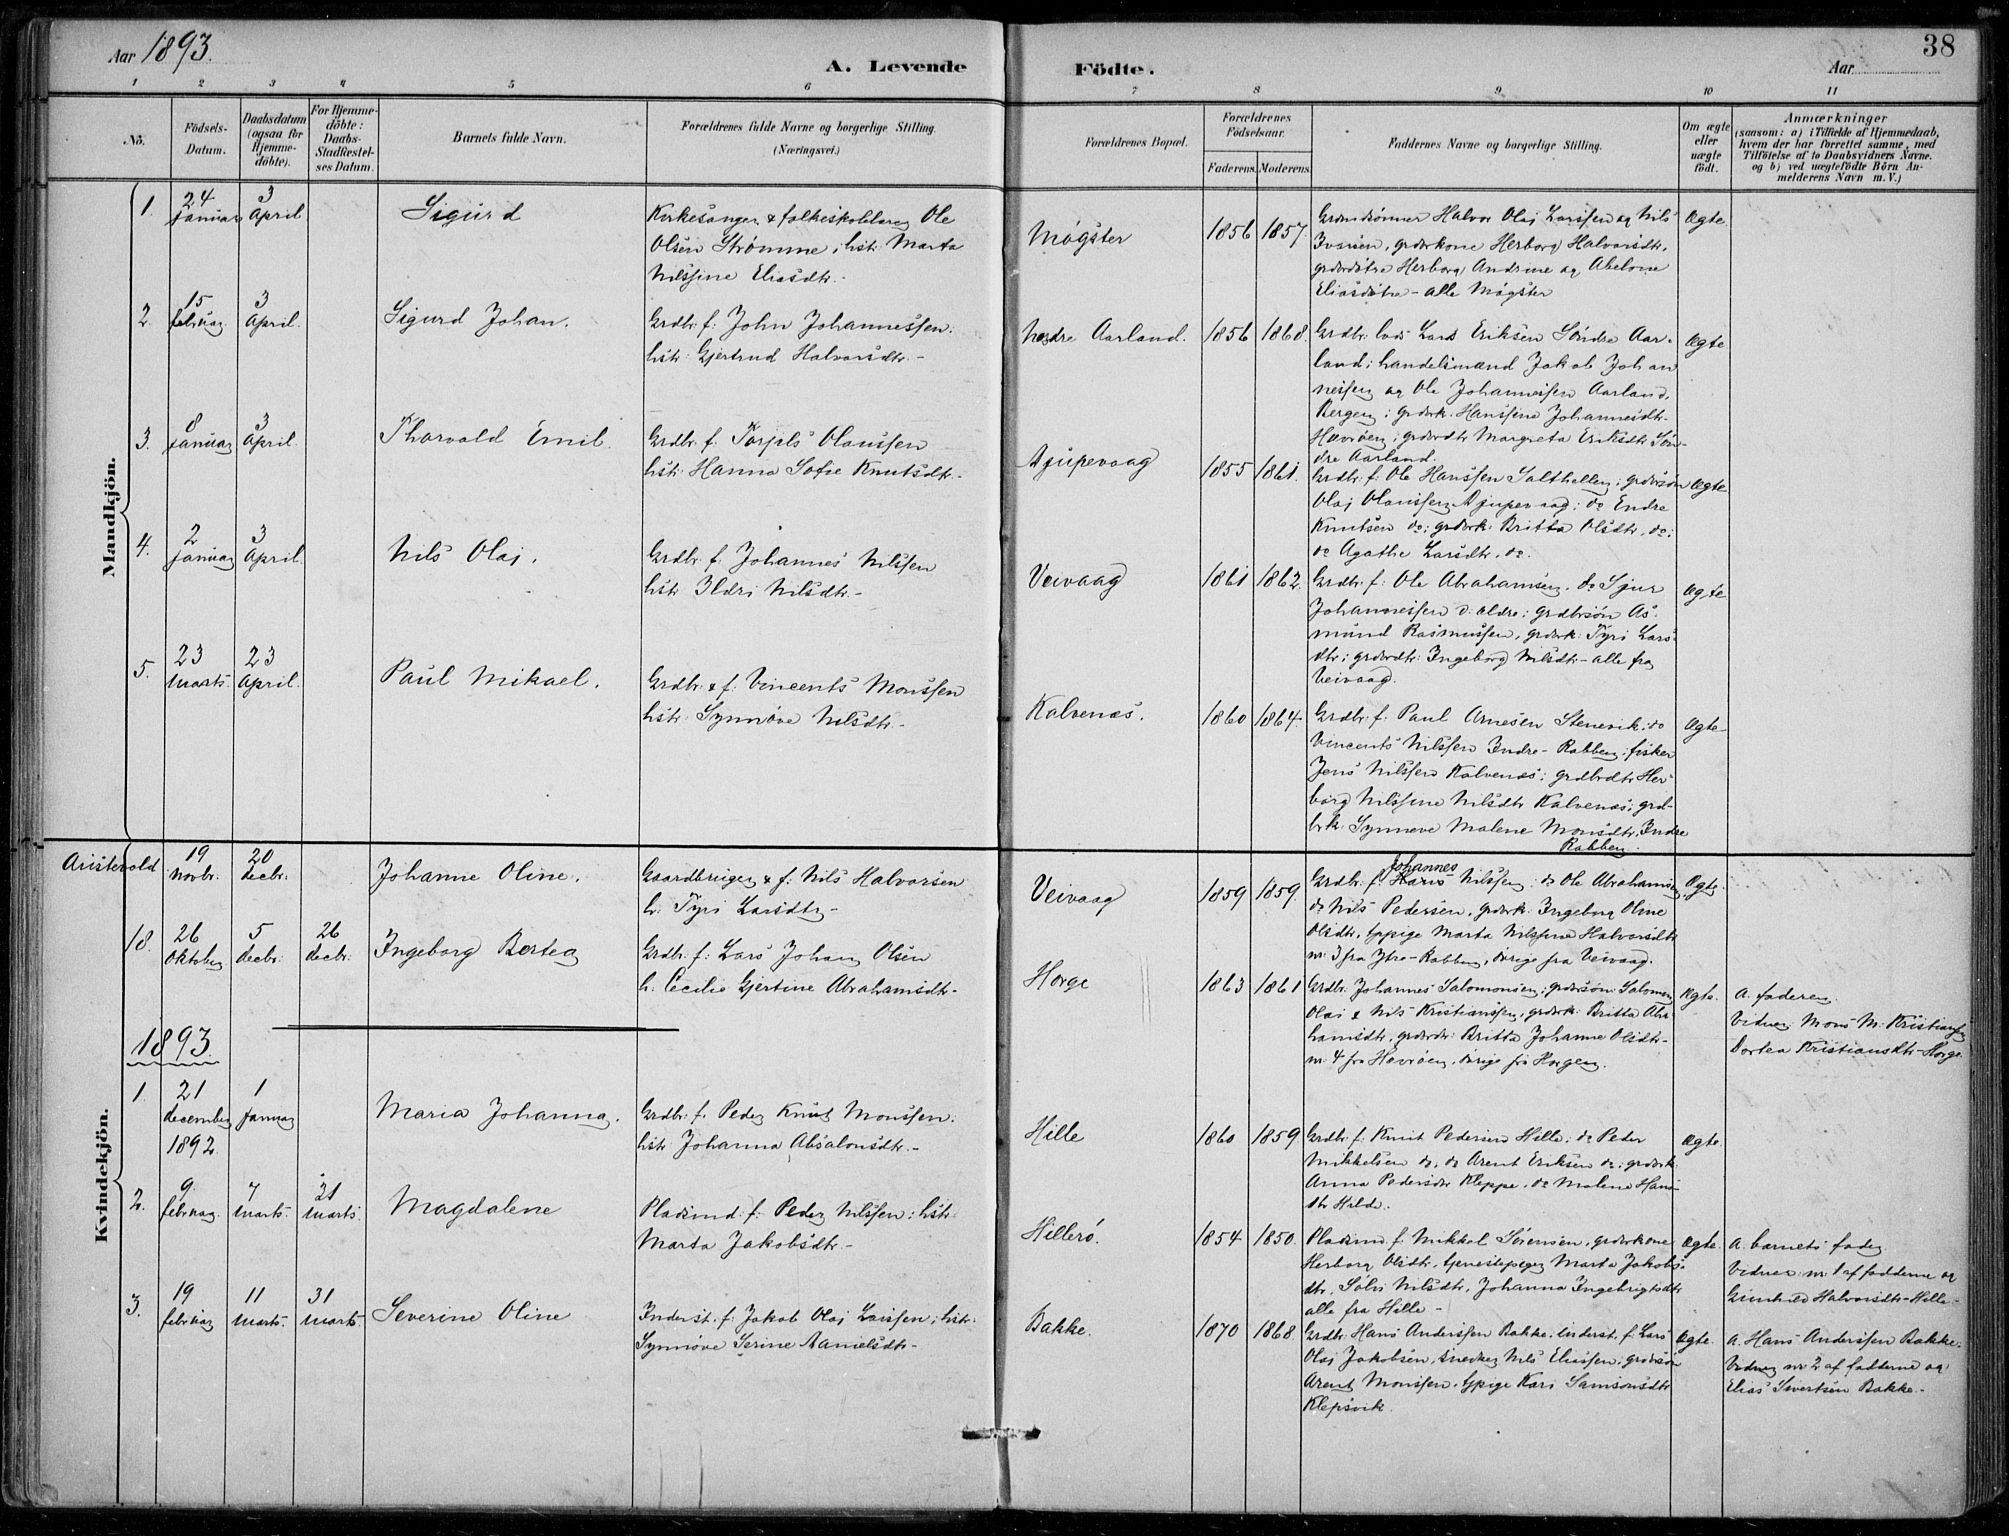 Aar 1893.
A. Levende
Födte.
Aar
38
1 2 3 4 5 6 7 8 9 10 11
No.
Födsels-
Datum.
Daabsdatum
(ogsaa for
Hjemme-
döbte).
For Hjemme-
döbte:
Daabs-
Stadfæstel-
ses Datum.
Barnets fulde Navn.
Forældrenes fulde Navne og borgerlige Stilling.
(Næringsvei.)
Forældrenes Bopæl.
Forældrenes
Födselsaar.
Faderens. Moderens.
Faddernes Navne og borgerlige Stilling.
Om ægte
eller
uægte
födt.
Anmærkninger
(saasom: a) i Tilfælde af Hjemmedaab,
hvem der har forrettet samme, med
Tilföielse af to Daabsvidners Navne.
og b) ved uægtefödte Börn An-
melderens Navn m. V.)
Mandkjön.
1.
24
Januar
3
April
Sigurd
Kirkesanger & folkeskolelærer Ole
Olsen Strømme, hstr. Marta
Nilssine Eliasdtr.-
Møgster
1856 1857.
Halvor Olai Larssen og Nils
Ivarsen, grdbrkone Herborg Halvorsdtr,
grdbrdøtre Herborg Andrine og Abeline
Eliasdøtre - alle Møgster
Ægte
2
15
februar
3
April.
Sigurd Johan.
Grdbr. f. John Johannessen.
hstr. Gjertrud Halvorsdtr.-
nedre Aarland.
1856 1868.
Grdbr. lods Lars Eriksen Søndre Aar-
land; handelsmænd Jakob Johan
nessen og Ole Johannessen Aarland,
Bergen; grdbrk. Hanssine Johannesdtr.
Hevrøen; grdbrdtr Margreta Eriksdtr Søn-
dre Aarland.
Ægte
3.
8
Januar
3
April.
Tharvald Emil.
Grdbr. f. Torjels Olaussen
hstr. Hanna Sofie Knutsdtr.-
Djupevaag
1855 1861.
Grdbr. f. Ole Hanssen Salthellen; grdbrsøn
Olai Olaussen Djupevaag; do Endre
Knutsen do; grdbrk. Britta Olsdtr. do;
do Agathe Larsdtr. do.
Ægte
4.
2
Januar
3
April
Nils Olai.
Grdbr. f. Johannes Nilssen
hstr. Ildri Nilsdtr.-
Veivaag
1861 1862.
Grdbr. f. Ole Abrahamsen. do Sjur
Johannessen d. ældre; grdbrsøn As-
mund Rasmussen, grdbrk. Tyri Lars-
dtr; grdbrdtr. Ingeborg Nilsdtr - alle fra
Veivaag.
Ægte
5.
23
Marts.
23
April.
Paul Mikael.
Grdbr. & f. Vincents Monssen
hstr. Synnøve Nilsdtr.-
Kalvenes.
1860 1864.
Grdbr. f. Paul Arnesen Stenevik. do
Vincents Nilssen Indre-Rabben; fisker
Jens Nilssen Kalvenes; grdbrdtr Her-
borg Nilssine Nilsdtr Kalvenes; grd-
brk. Synneve Malene Monsdtr. Indre
Rabben.
Ægte
19
Novbr.
20
decbr.
Johanne Oline.
Gaardbruger & f. Nils Halvorsen
h. Tyri Larsdtr.-
Veivaag
1859 1859.
Johannes
Grdbr. f. Nilssen; do Ole Abrahamsen
do Nils Pedersen, grdbrk. Ingeborg Oline
Olsdtr. Marta Nilssine Halvorsdtr
nr. 3 fra Ytre-Rabben, øvrige fra Veivaag.
Ægte
18.
26
Oktober
5
decbr.
26
decbr.
Ingeborg Bertea
Grdbr. f. Lars Johan Olsen
h. Cecilie Gjertine Abrahamsdtr.-
Horge
1863 1861
Grdbr. Johannes Salomonsen; grdbrsøn Salomon
Olai & Nils Kristianssen, grdbrk. Britta Abra-
hamsdtr, grdbrdtr. Britta Johanne Olsdtr-
nr. 4 fra Hevrøen, øvrige fra Horgen.
Ægte.
a. faderen.
Vidner: Mons M. Kristiansen
Dortea Kristiansdtr-Horge
1893.
Kvindekjön.
1.
21
december
1892
1
Januar
Maria Johanna.
Grdbr. f. Peder Knut Monssen.
hstr. Johanna Absalonsdtr.-
Hille
1860 1859.
Grdbr. f. Knut Pedersen Hille; do Peder
Mikkelsen do, do Arent Eriksen do; grdbrk.
Anna Pedersdtr Kleppe. do Malene Hans-
dtr Hilde.
Ægte.
2.
9
februar.
7
Marts.
31
Marts.
Magdalene
Pladsmd. f. Peder Nilssen; hstr.
Marta Jakobsdtr.-
Hillerø.
1854 1850.
Pladsmd. f. Mikkel Sørensen, grdbrkone
Herborg Olsdtr, tjenestepigen Marta Jakobs-
dtr. Nilsdtr, Johanna Ingebrigtsdtr.
alle fra Hille-
Ægte.
a. barnets fader
Vidner: nr. 1 af fadderne og
Halvorsdtr-Hille-
3.
19
februar
11
Marts.
31
Marts.
Severine Oline
Inderst. f. Jakob Olai Larssen; hstr.
Synnøve Serine Danielsdtr-
Bakke.
1870 1868.
Grdbr. Hans Anderssen Bakke. inderst. f. Lars
Olai Jakobsen, snedker Nils Eliassen; grdbrsøn
Arent Monssen. Kari Samsonsdtr
Klepsvik.
Ægte.
a. Hans Anderssen Bakke.
Vidner nr 2 af fadderne og
Elias Sivertsen Bakke.-